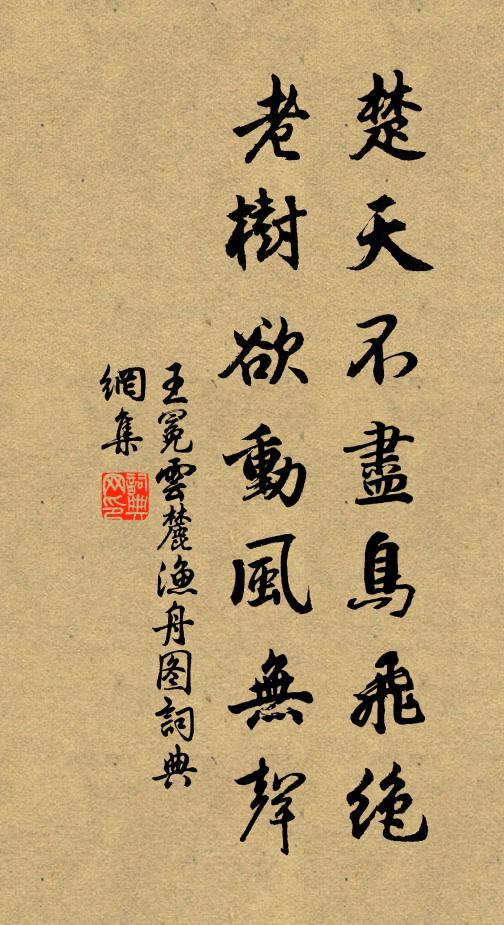 楚天不盡鳥飛絶
老樹欲動風無聲
王冕雲麓漁舟图詞典
網集
詞典
网印